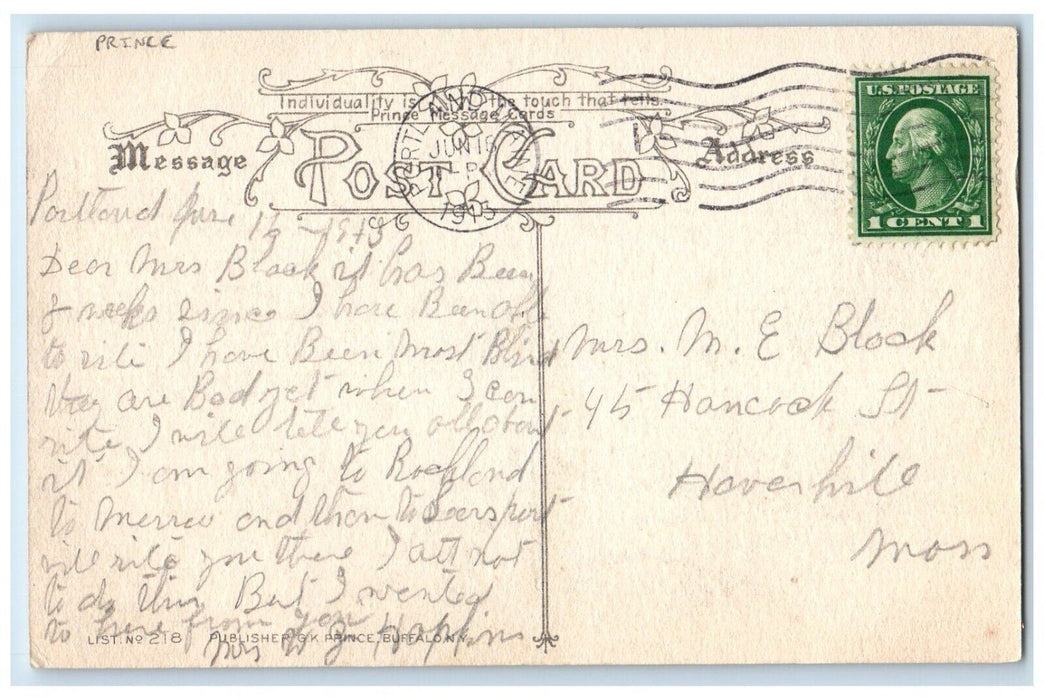 PRINCE
Individuality is the touch that tells.
Prince Message Cards
Message
POST CARD
Address
PORTLAND MAINE
JUN 16
P
U.S. POSTAGE
1 CENT 1
Portland June
Dear Mrs Black it has Been
weeks since I have Been able
to rite I have Been most Blind
they are Bad yet when I can
rite I will tell you all about
it I am going to Rockland
to morrow and then to Searsport
will rite you there I att not
to do this But I wanted
to here from you
Mrs W Hopkins
Mrs. M. E Black
45 Hancock St
Haverhill
Mass
LIST. No 218 PUBLISHER G.K. PRINCE, BUFFALO N.Y.